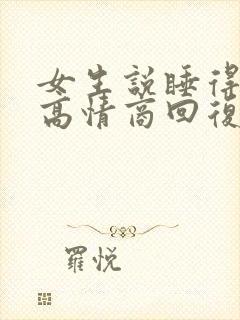 女生說睡得
高情商回復
羅悅